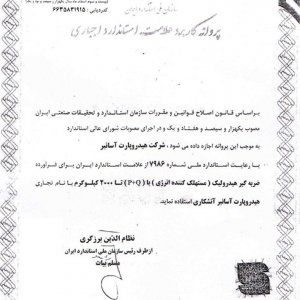 سازمان ملی استاندارد ایران
کدردیابی: ۶۶۳۵۸۳۱۹۱۵
پروانه کاربرد علامت استاندارد اجباری
براساس قانون اصلاح قوانین و مقررات سازمان استاندارد و تحقیقات صنعتی ایران
مصوب یکهزار و سیصد و هفتاد و یک و در اجرای مصوبات شورای عالی استاندارد
به موجب این پروانه اجازه داده می شود ، شرکت هیدروپارت آسانبر
با رعایت استاندارد ملی شماره ۷۹۸۶ از علامت استاندارد ایران برای فرآورده
ضربه گیر هیدرولیک ( مستهلک کننده انرژی ) با (P+Q) تا ۲۰۰۰ کیلوگرم با نام تجاری
هیدروپارت آسانبر آشکاری استفاده نماید.
نظام الدین برزگری
ازطرف رئیس سازمان ملی استاندارد ایران
مسلم بیات